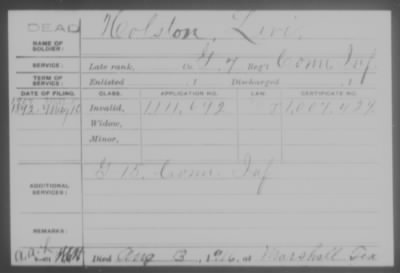 DEAD
Holston, Levi
NAME OF SOLDIER:
SERVICE: Late rank, Co. G, 7 Reg't Conn Inf.
TERM OF SERVICE: Enlisted , 1 Discharged , 1
DATE OF FILING. CLASS. APPLICATION NO. LAW. CERTIFICATE NO.
1892 May 18 Invalid, 1,111,642 1,007,429
Widow,
Minor,
ADDITIONAL SERVICES: G 15, Conn Inf
REMARKS:
Died Aug 3, 1916, at Marshall Tex